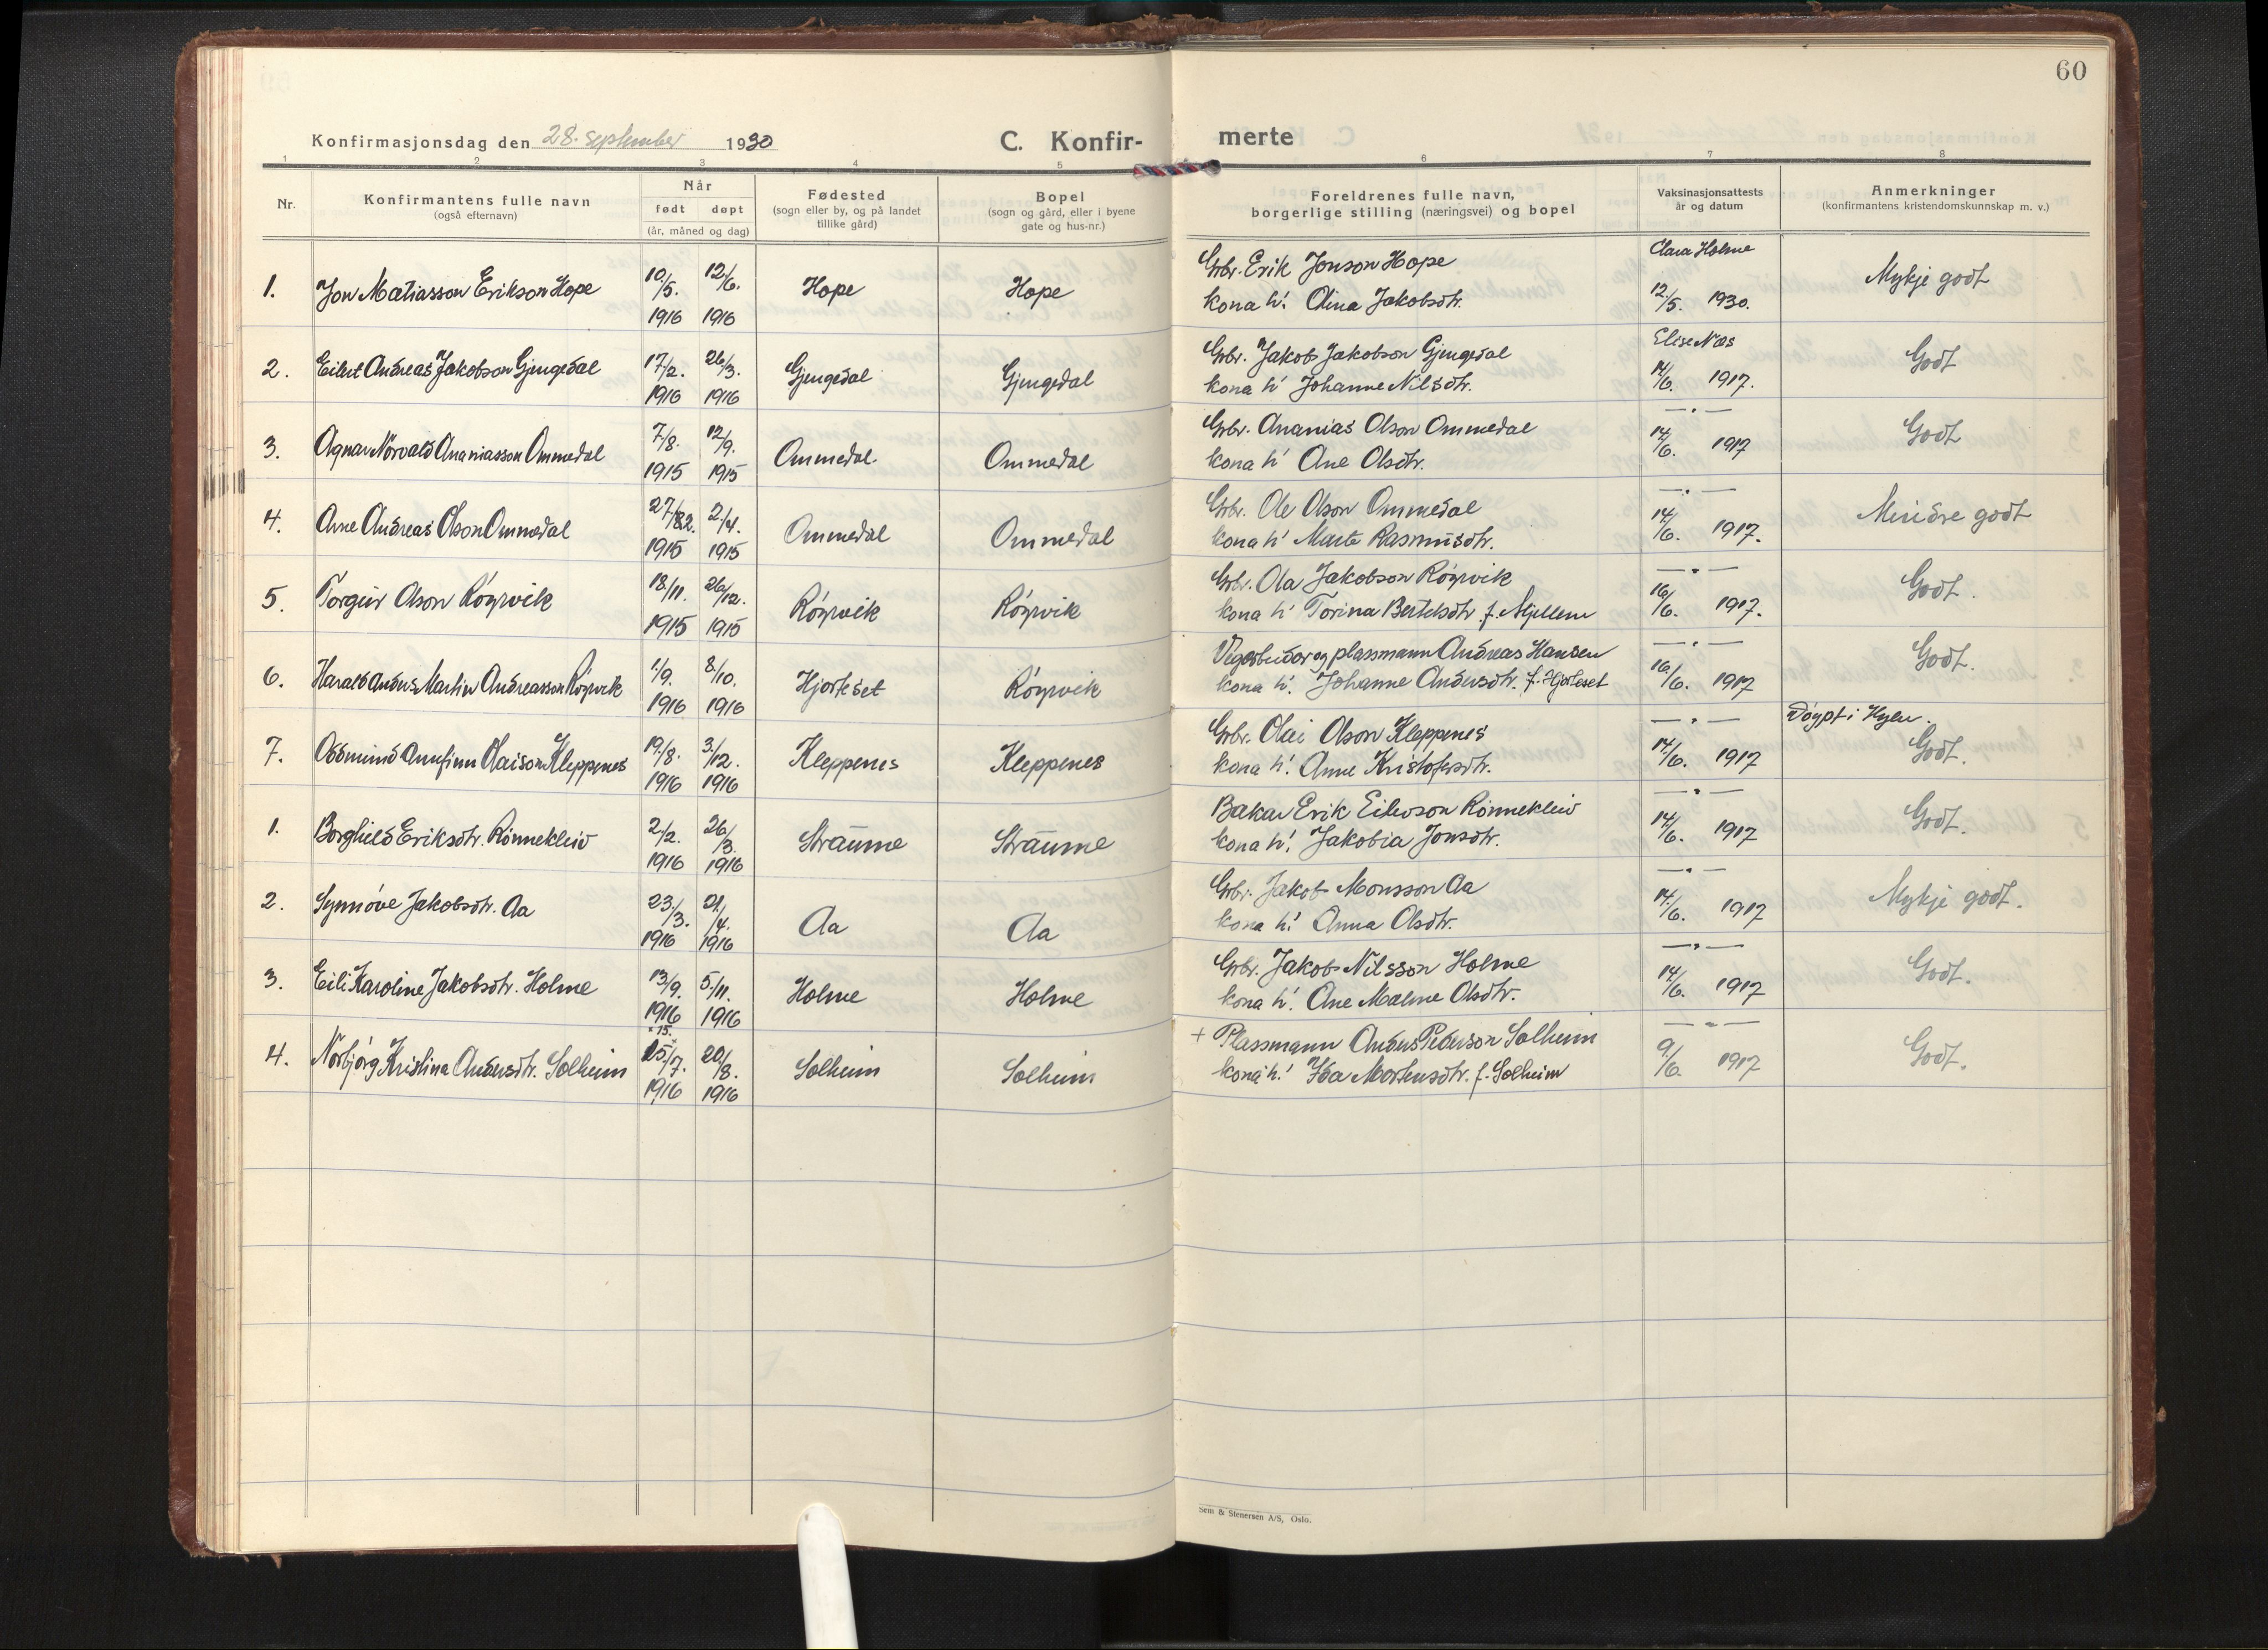 60
Konfirmasjonsdag den 28. september 1930
C. Konfir-
merte
1 2 3 4 5 6 7 8
Nr.
Konfirmantens fulle navn
(også efternavn)
Når
født døpt
(år, måned og dag)
Fødested
(sogn eller by, og på landet
tillike gård)
Bopel
(sogn og gård, eller i byene
gate og hus-nr.)
Foreldrenes fulle navn,
borgerlige stilling (næringsvei) og bopel
Vaksinasjonsattests
år og datum
Anmerkninger
(konfirmantens kristendomskunnskap m. v.)
1. Jon Matiasson Erikson Hope 10/5. 1916 12/6. 1916 Hope Hope
Gbr. Erik Jonson Hope
kona h! Olina Jakobsdtr.
Clara Holme
12/5. 1930.
Mykje godt
2. Eilert Andreas Jakobson Gjengedal 17/2. 1916 26/3. 1916 Gjengedal Gjengedal
Gbr. Jakob Jakobson Gjengedal
kona h' Johanne Nilsdtr.
Elise Næs
14/6. 1917.
Godt
3. Agnar Norvald Ananiasson Ommedal 7/8. 1915 12/9. 1915 Ommedal. Ommedal
Gbr. Ananias Olson Ommedal
kona h' Ane Olsdtr.
— " —
14/6. 1917
Godt
4. Arne Andreas Olson Ommedal 27/2. 1915 2/4. 1915 Ommedal Ommedal
Gbr. Ole Olson Ommedal
kona h' Marte Rasmusdtr.
— " —
14/6. 1917.
Mindre godt
5. Torgeir Olson Röyrvik 18/11. 1915 26/12. 1915 Röyrvik Röyrvik
Gbr. Ola Jakobson Röyrvik
kona h' Torina Bertelsdtr. f. Mjellem
— " —
16/6. 1917.
Godt.
6. Harald Anders Martin Andreasson Röyrvik 1/9. 1916 8/10. 1916 Hjorteset Röyrvik
Vegarbeidar og plassmann Andreas Hansen
kona h'. Johanne Andersdtr. f. Hjorteset
— " —
16/6. 1917
Godt.
7. Oddmund Arnfinn Olaison Kleppenes 19/8. 1916 3/12. 1916 Kleppenes Kleppenes
Gbr. Olai Olson Kleppenes
kona h'. Anne Kristofersdtr.
— " —
14/6. 1917
Döypt i Hyen.
Godt.
1. Borghild Eriksdtr. Rönnekleiv 2/2. 1916 26/3. 1916 Straume Straume
Bakar Erik Eilevson Rönnekleiv
kona h! Jakobia Jonsdtr.
— " —
14/6. 1917
Godt.
2. Synnöve Jakobsdtr. Aa 23/3. 1916 21/4. 1916 Aa Aa
Gbr. Jakob Monsson Aa
kona h! Anna Olsdtr.
— " —
14/6. 1917
Mykje godt.
3. Eili Karoline Jakobsdtr. Holme 13/9. 1916 5/11. 1916 Holme Holme
Gbr. Jakob Nilsson Holme
kona h'. Ane Malene Olsdtr.
— " —
14/6. 1917
Godt.
4. Norbjörg Kristina Andersdtr. Solheim 15/7. 1916 20/8. 1916 Solheim Solheim
+ Plassmann Anders Pederson Solheim
kona h! Ida Mortensdtr. f. Solheim
— " —
9/6. 1917
Godt.
Sem & Stenersen A/S, Oslo.